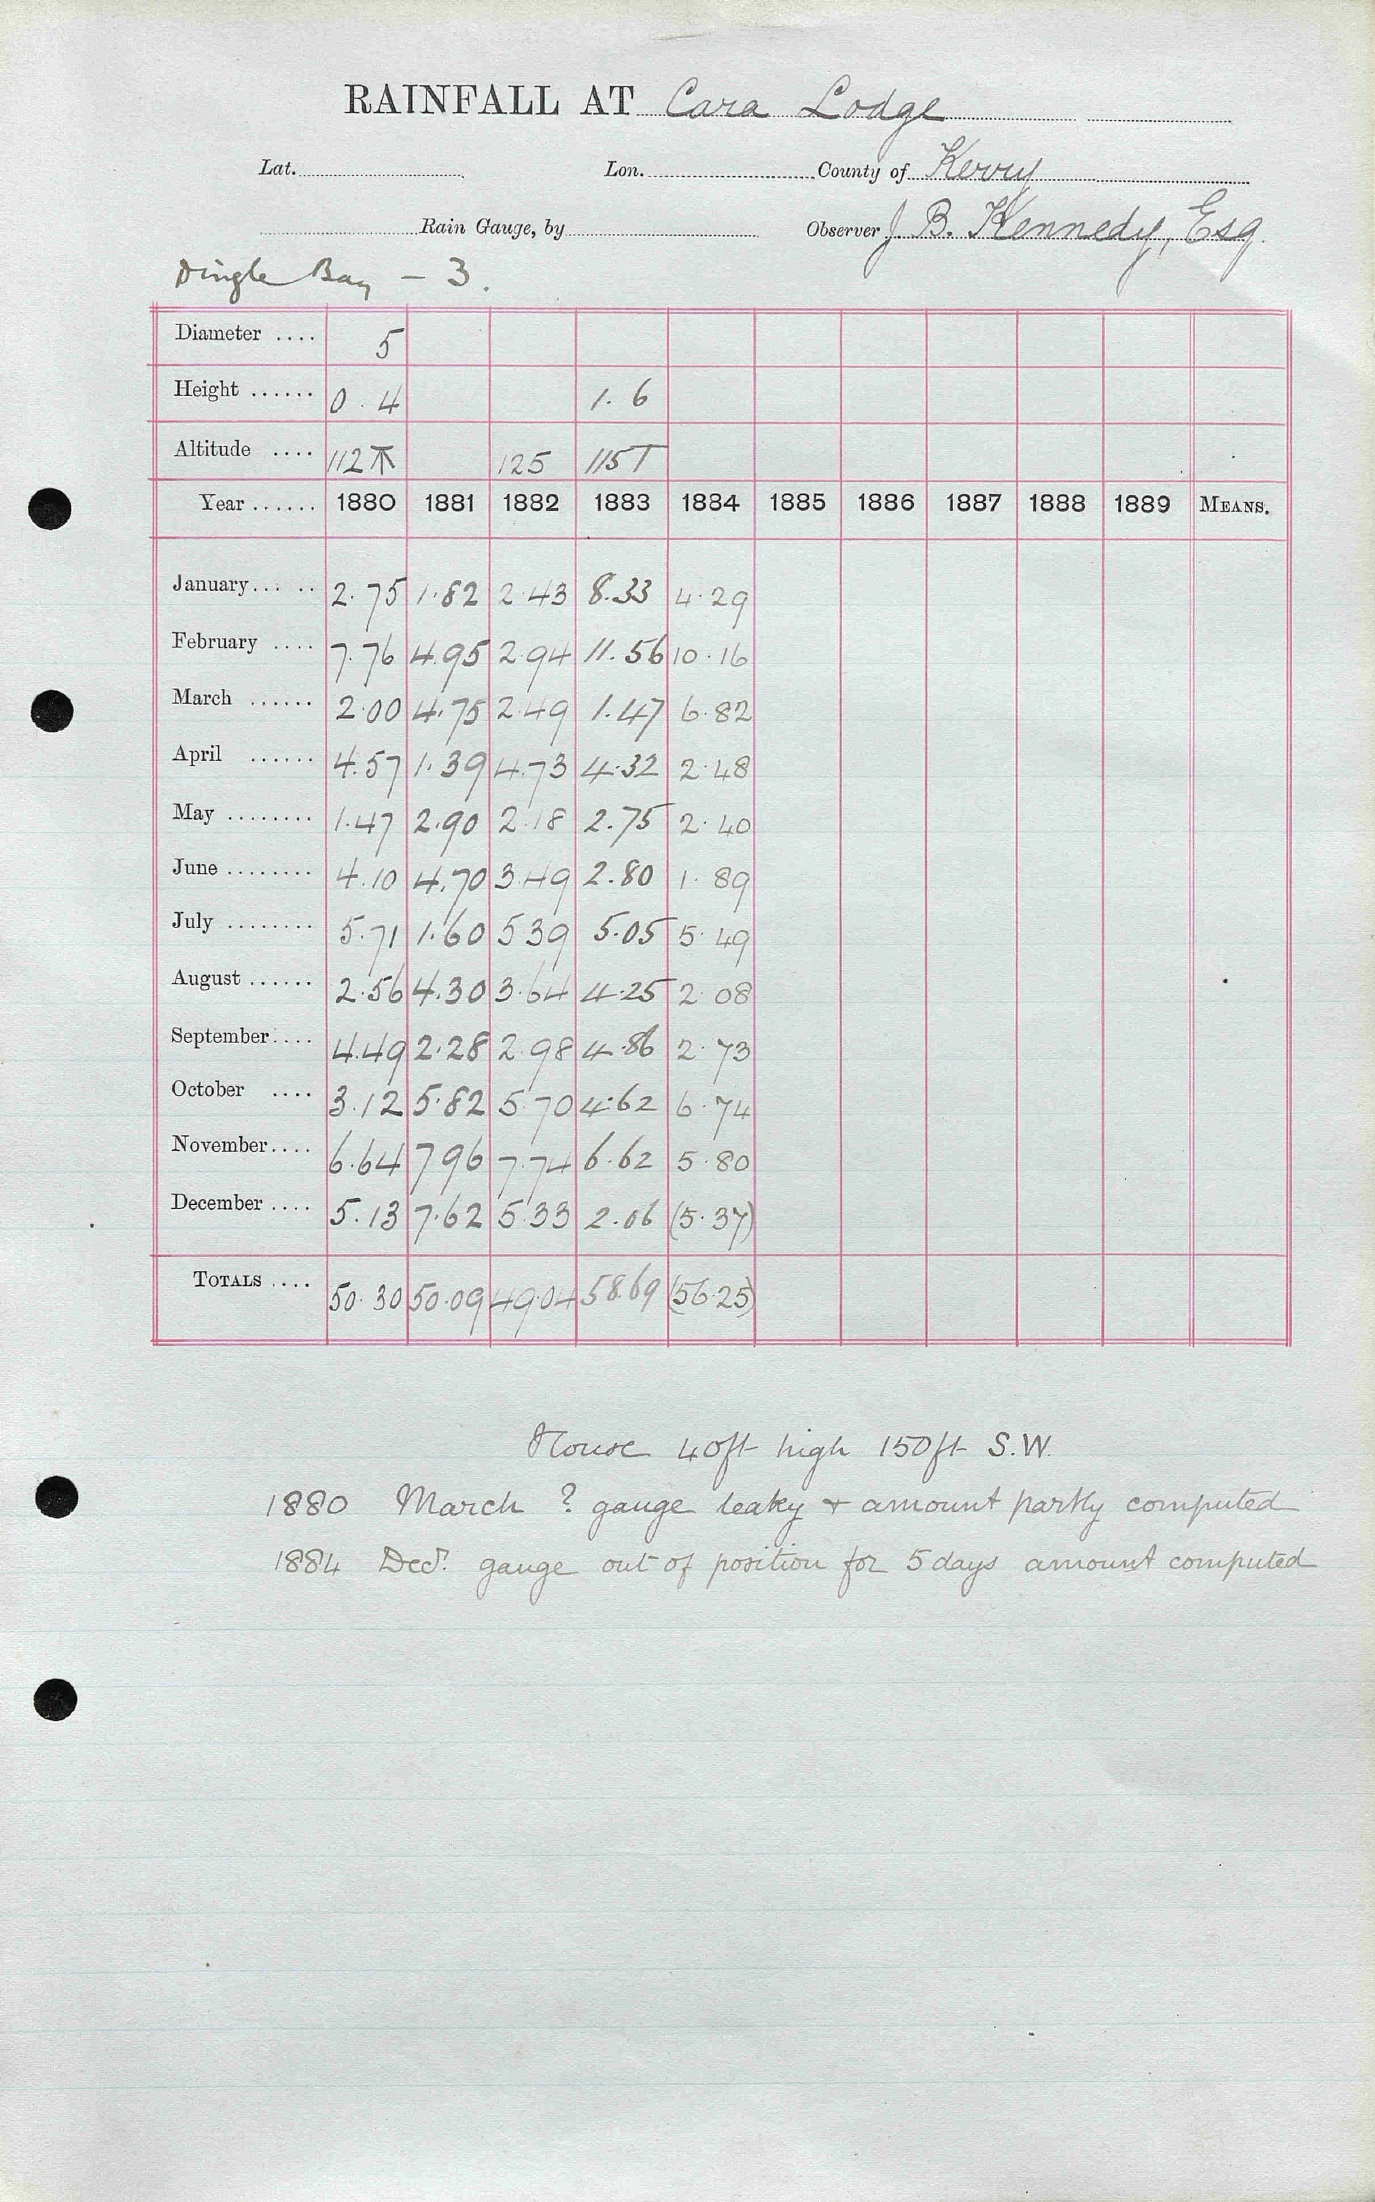 RAINFALL AT Cara Lodge
Lat. Lon. County of Kerry
Rain Gauge, by Observer J B. Kennedy, Esq.
Dingle Bay - 3.
Diameter .... 5
Height ...... 0.4 1.6
Altitude .... 112 125 115T
Year ...... 1880 1881 1882 1883 1884 1885 1886 1887 1888 1889 MEANS.
January... .. 2.75 1.82 2.43 8.33 4.29
February .... 7.76 4.95 2.94 11.56 10.16
March ...... 2.00 4.75 2.49 1.47 6.82
April ...... 4.57 1.39 4.73 4.32 2.48
May ........ 1.47 2.90 2.18 2.75 2.40
June ........ 4.10 4.70 3.49 2.80 1.89
July ........ 5.71 1.60 5.39 5.05 5.49
August ...... 2.56 4.30 3.64 4.25 2.08
September.... 4.49 2.28 2.98 4.86 2.73
October .... 3.12 5.82 5.70 4.62 6.74
November.... 6.64 7.96 7.74 6.62 5.80
December .... 5.13 7.62 5.33 2.06 (5.37)
TOTALS .... 50.30 50.09 49.04 58.69 (56.25)
House 40ft high 150ft S.W.
1880 March ? gauge leaky + amount partly computed
1884 Decr. gauge out of position for 5 days amount computed